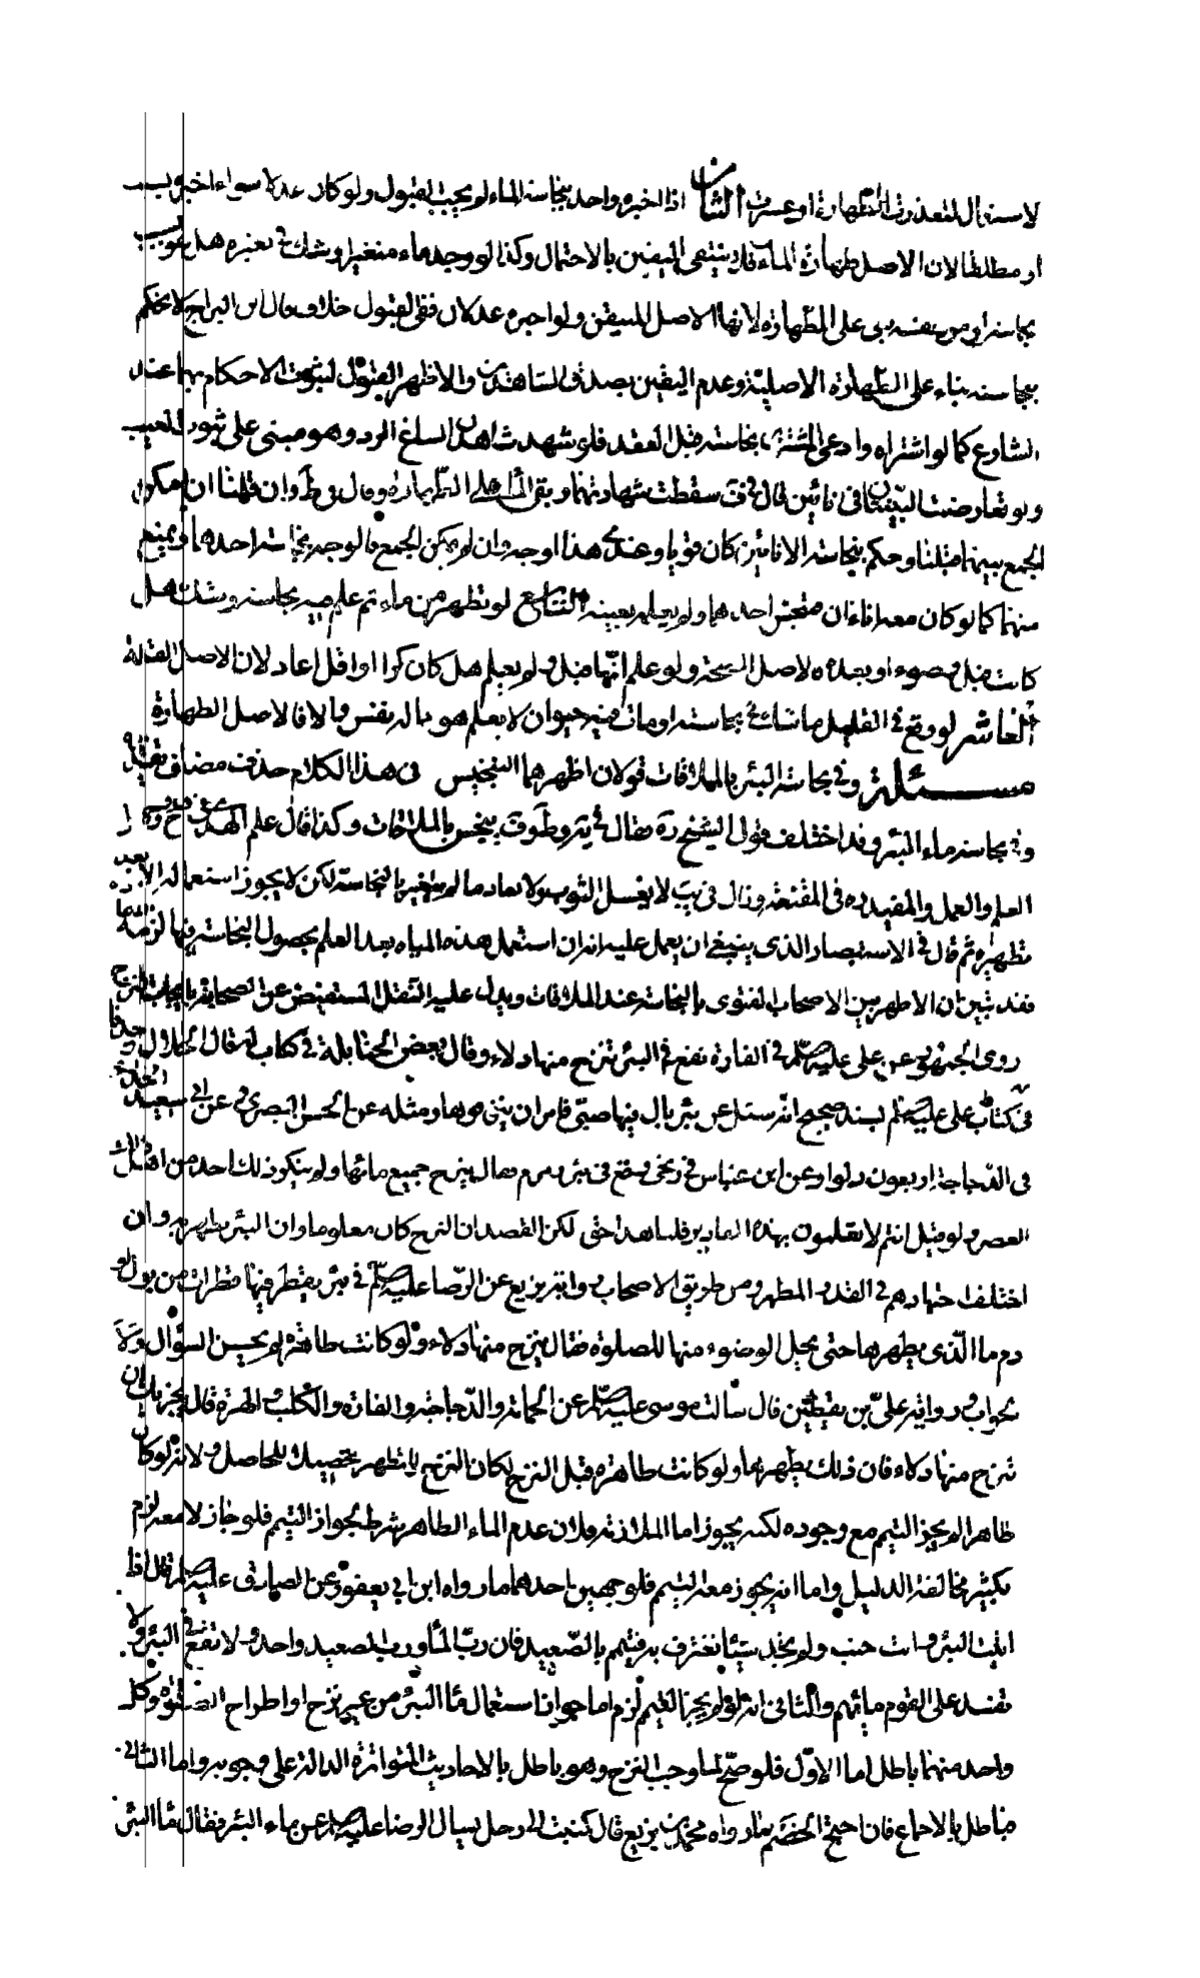 لاستعمال لتعذرت الطهارة او عسرت الثامن اذا اخبره واحد بنجاسة الماء لم يجب القبول ولو كان عدلا سواء اخبره بسبب
او مطلقا لان الاصل طهارة الماء فلا ينتفي اليقين بالاحتمال وكذا لو وجد ماء متغيرا وشك في تغيره هل هو بسبب
نجاسة او من نفسه بنى على الطهارة لانها الاصل المتيقن ولو اخبره عدلان ففي القبول خلاف قال ابن البراج لا يحكم
بنجاسته بناء على الطهارة الاصلية وعدم اليقين بصدق الشاهدين والاظهر القبول لثبوت الاحكام بهما عند
الشارع كما لو اشتراه وادعى المشتري نجاسته قبل العقد فلو شهد شاهدان لساغ الرد وهو مبني على ثبوت العيب
ولو تعارضت البينتان في انائين قال في ف سقطت شهادتهما وبقي الماء على الطهارة وقال في ط وان قلنا ان امكن
الجمع بينهما قبلتا وحكم بنجاسة الانائين كان قويا وعندي هذا اوجه وان لم يمكن الجمع فالوجه نجاسة احدهما ويمنع
منهما كما لو كان معه اناءان متنجس احدهما ولم يعلم بعينه التاسع لو تطهر من ماء ثم علم فيه نجاسة وشك هل
كانت قبل وضوءه او بعده فالاصل الصحة ولو علم انها قبل ولم يعلم هل كان كرا او اقل اعاد لان الاصل القلة
العاشر لو وقع في القليل ما شك في نجاسته او مات فيه حيوان لا يعلم هو مما له نفس ام لا فالاصل الطهارة
مسئلة وفي نجاسة البئر بالملاقات قولان اظهرهما التنجيس في هذا الكلام حذف مضاف تقديره
وفي نجاسة ماء البئر وقد اختلف قول الشيخ ره فقال في يه وط وف ينجس بالملاقات وكذا قال علم الهدى في
العلم والعمل والمفيد ره في المقنعة وقال في يب لا يغسل الثوب ولا يعاد ما لم يتغير بالنجاسة لكن لا يجوز استعماله الا بعد
تطهيره ثم قال في الاستبصار الذي ينبغي ان يعمل عليه انه ان استعمل هذه المياه بعد العلم بحصول النجاسة فيها لزمه
فقد تبين ان الاظهر بين الاصحاب الفتوى بالنجاسة عند الملاقات ويدل عليه النقل المستفيض عن الصحابة بايجاب النزح
روى الجمهور عن علي عليه السلم في الفارة تقع في البئر تنزح منها دلاء وقال بعض الحنابلة في كتاب له قال الخلال وجدنا
في كتاب علي عليه السلم بسند صحيح انه سئل عن بئر بال فيها صبي فامر ان ينزفوها ومثله عن الحسن البصري وعن ابي سعيد الخدري
في الدجاجة اربعون دلوا وعن ابن عباس في زنجي وقع في بئر زمزم فمات ينزح جميع مائها ولم ينكر ذلك احد من اهل ذلك
العصر ولو قيل انتم لا تعملون بهذه المقادير قلنا هذا حق لكن القصد ان النزح كان معلوما وان البئر يطهر به وان
اختلف اجتهادهم في القدر المطهر ومن طريق الاصحاب رواية بن بزيع عن الرضا عليه السلم في بئر يقطر فيها قطرات من بول او
دم ما الذي يطهرها حتى يحل الوضوء منها للصلوة فقال ينزح منها دلاء ولو كانت طاهرة لم يحسن السؤال ولا
الجواب ورواية علي بن يقطين قال سألت موسى عليه السلم عن الحمامة والدجاجة والفارة والكلب والهرة قال يجزيك ان
تنزح منها دلاء فان ذلك يطهرها ولو كانت طاهرة قبل النزح لكان النزح للتطهير تحصيلا للحاصل ولانه لو كان
طاهرا لم يجز التيمم مع وجوده لكنه يجوز اما الملازمة فلان عدم الماء الطاهر شرط لجواز التيمم فلو جاز لا معه لزم
تكثير مخالفة الدليل واما انه يجوز معه التيمم فلوجهين احدهما ما رواه ابن ابي يعفور عن الصادق عليه السلم قال اذا
اتيت البئر وانت جنب ولم تجد شيئا تغترف به فتيمم بالصعيد فان رب الماء ورب الصعيد واحد ولا تقع في البئر ولا
تفسد على القوم مائهم والثاني انه لو لم يجز التيمم لزم اما جواز استعمال ماء البئر من غير نزح او اطراح الصلوة وكل
واحد منهما باطل اما الاول فلو صح لما وجب النزح وهو باطل بالاحاديث المتواترة الدالة على وجوبه واما الثاني
فباطل بالاجماع فان احتج الخصم بما رواه محمد بن بزيع قال كتبت الى رجل يسال الرضا عليه السلم عن ماء البئر فقال ماء البئر